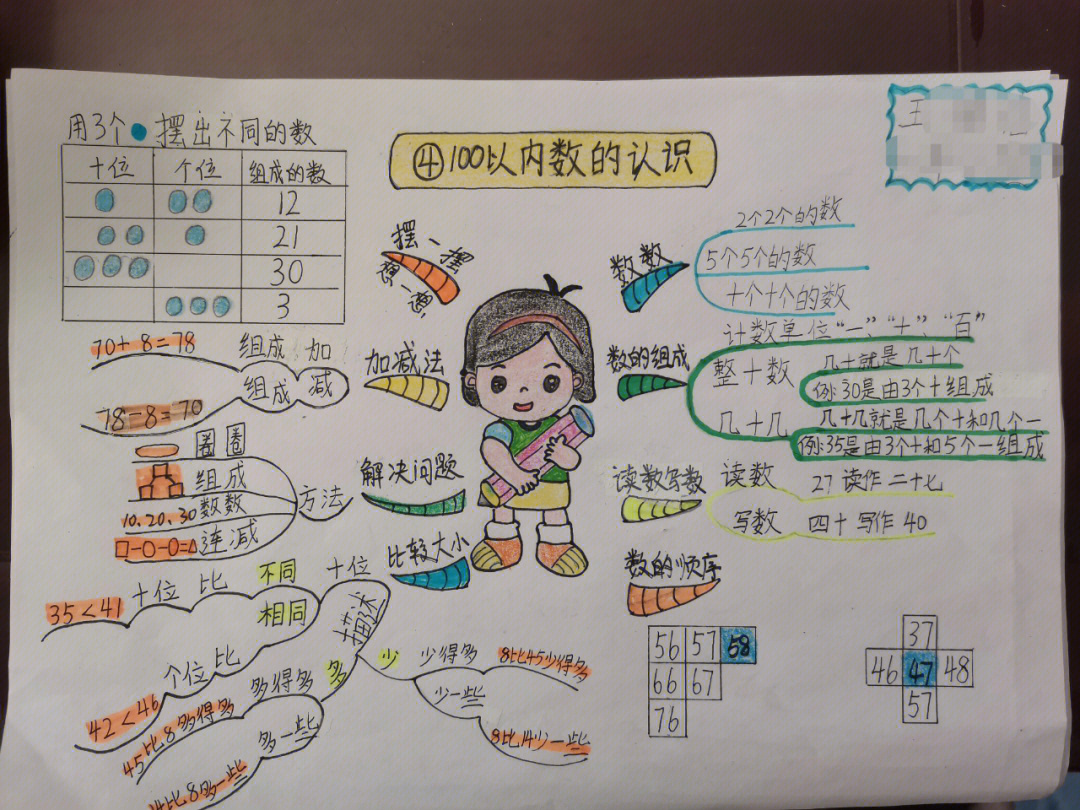 ④100以内数的认识
王
用3个●摆出不同的数
十位 个位 组成的数
12
21
30
3
摆一摆
想一想
加减法
组成 加
70+8=78
组成 减
78-8=70
解决问题
方法
圈圈
组成
10、20、30 数数
□-○-○=△ 连减
比较大小
十位
不同
十位 比
35<41
相同
个位比
42<46
描述
多
多得多
45比8多得多
多一些
比8多一些
少
少得多
8比45少得多
少一些
8比14少一些
数数
2个2个的数
5个5个的数
十个十个的数
数的组成
计数单位“一”、“十”、“百”
整十数
几十就是几十个
例:30是由3个十组成
几十几
几十几就是几个十和几个一
例:35是由3个十和5个一组成
读数写数
读数
27 读作 二十七
写数
四十 写作 40
数的顺序
56 57 58
66 67
76
37
46 47 48
57